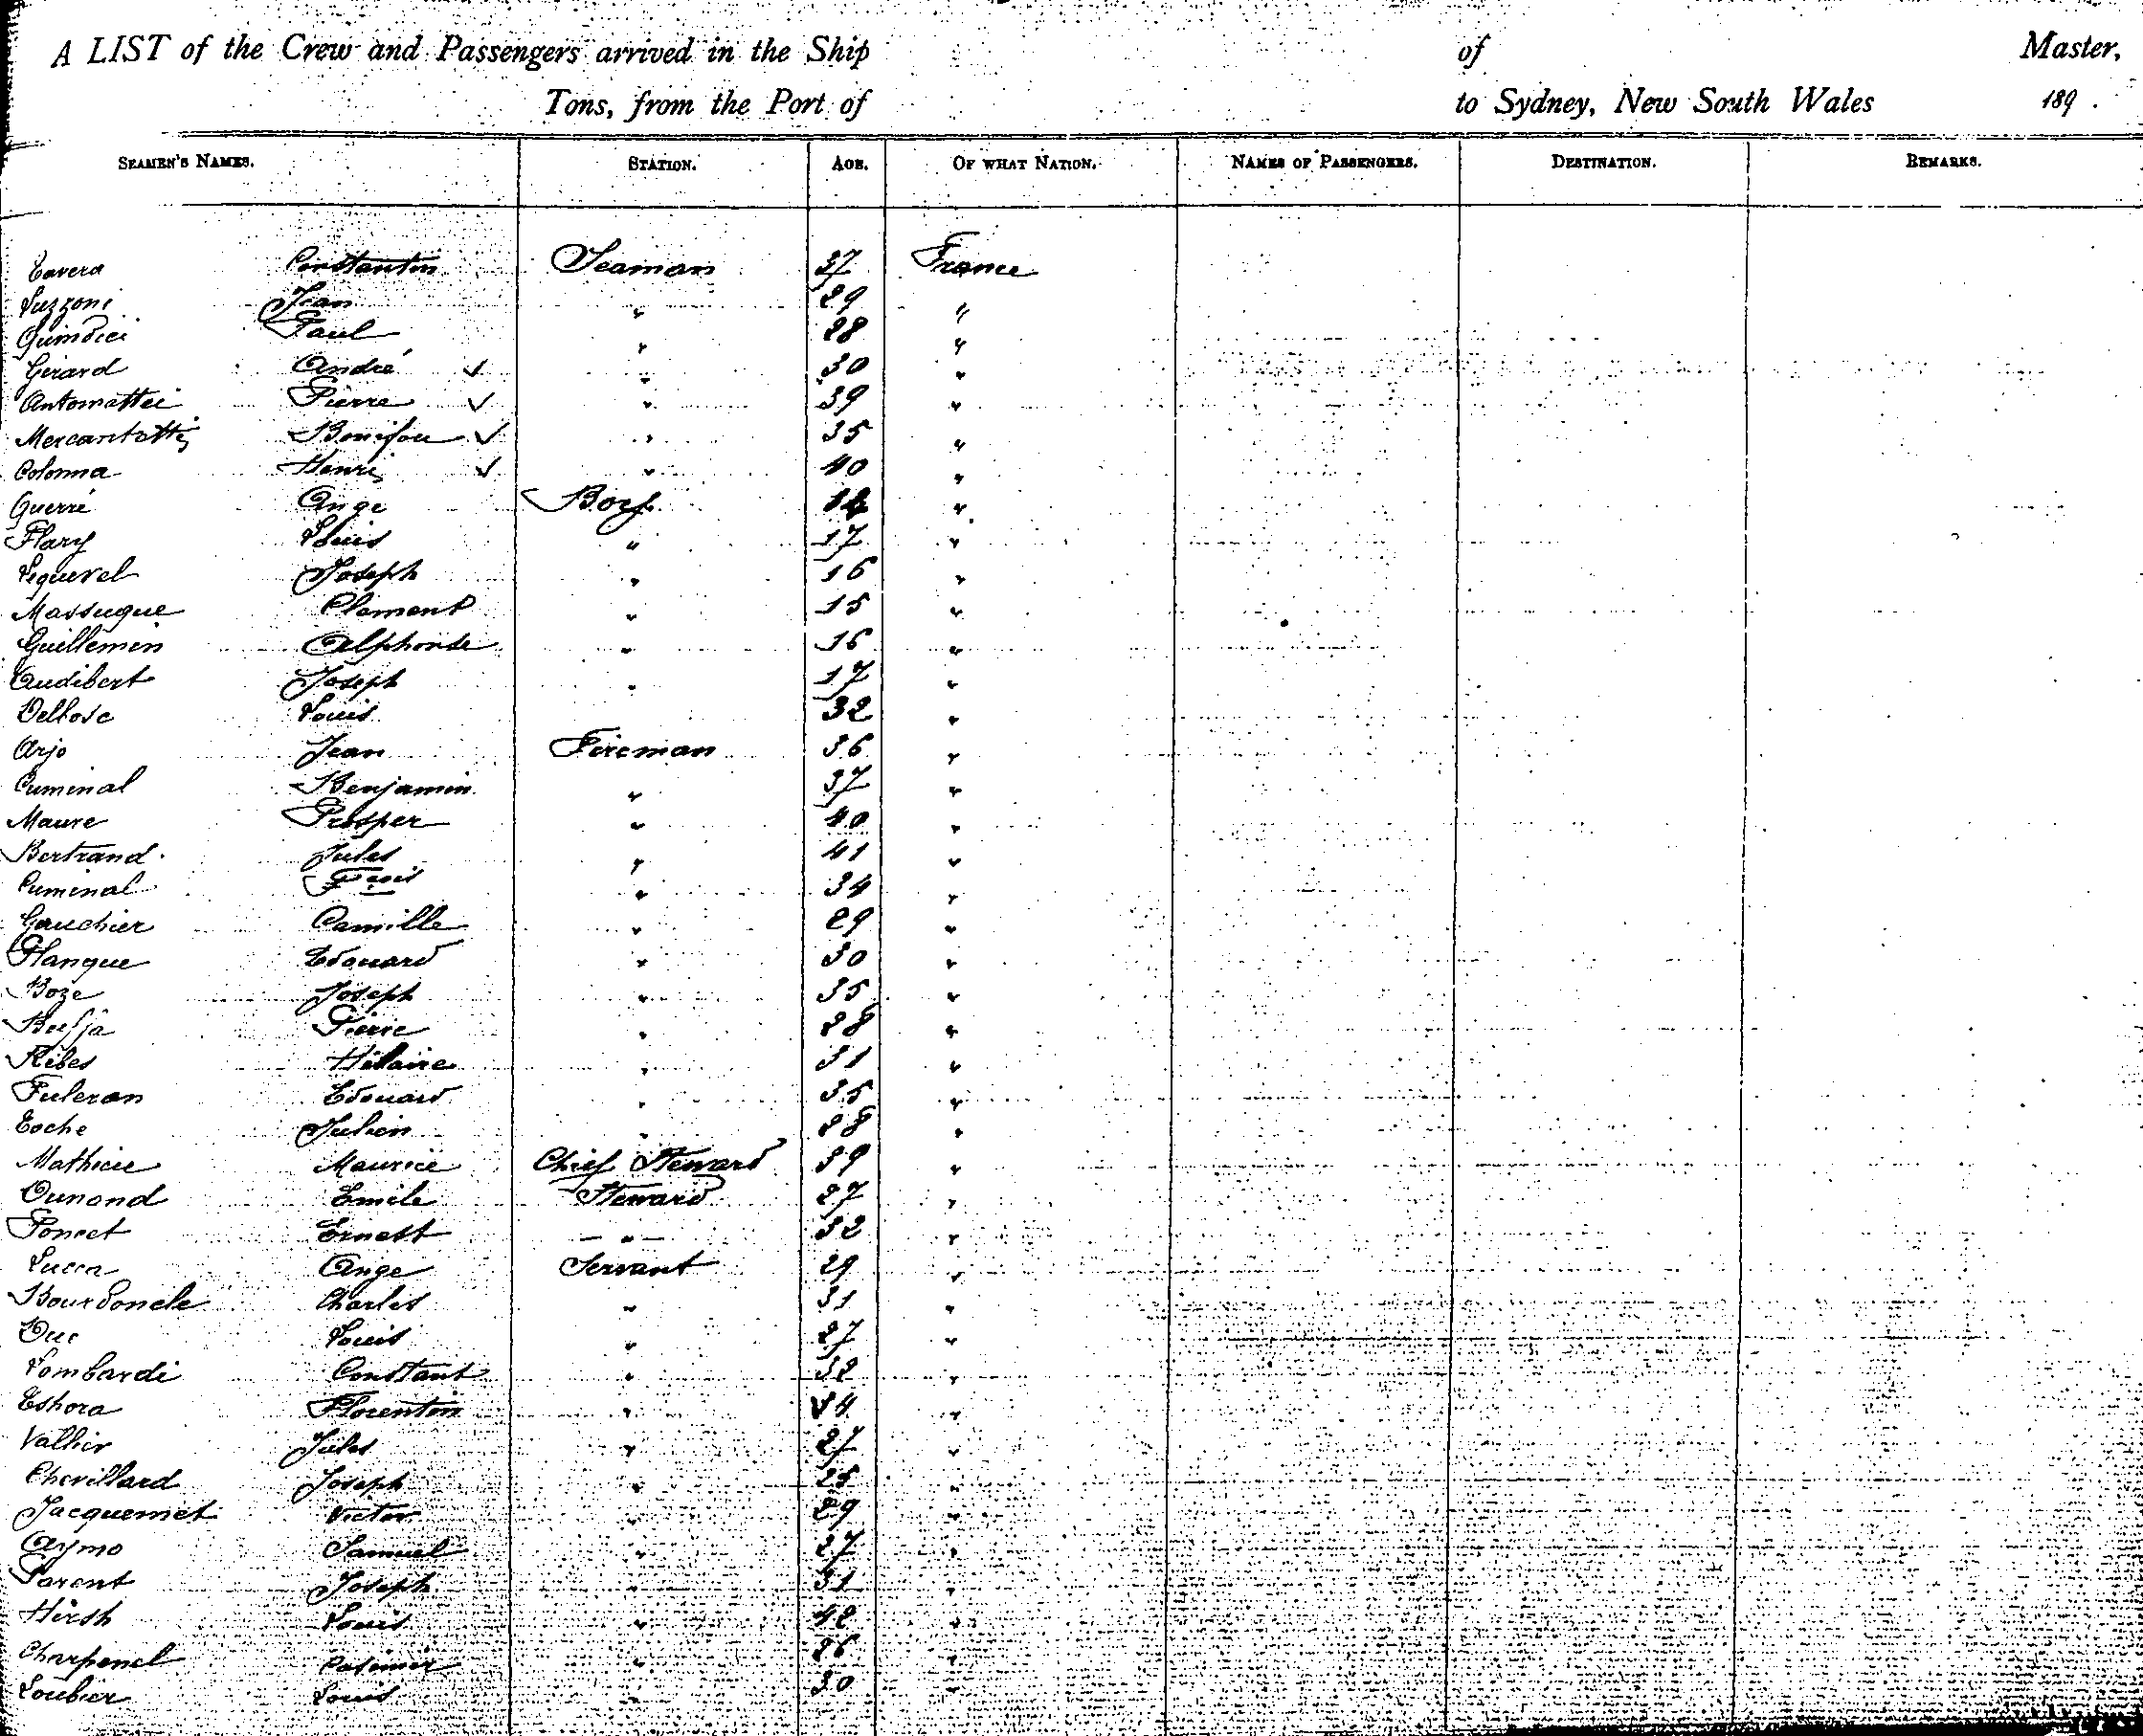 A LIST of the Crew and Passengers arrived in the Ship of Master,
Tons, from the Port of to Sydney, New South Wales 189 .
SEAMEN'S NAMES. STATION. AGE. OF WHAT NATION. NAMES OF PASSENGERS. DESTINATION. REMARKS.
Tavera Constantin Seaman 37 France
Luzzoni Jean " 29 "
Quindici Paul " 28 "
Girard André ✓ " 30 "
Antomattei Pierre ✓ " 39 "
Mercantatti ✓ " 35 "
Colonna Henri ✓ " 40 "
Guerré Ange Boy 14 "
Flary Louis " 17 "
Lequerel Joseph " 16 "
Massuque Clement " 15 "
Guillemin Alphonse " 16 "
Audibert Joseph " 17 "
Delbosc Louis 32 "
Arjo Jean Fireman 36 "
Cuminal Benjamin " 37 "
Maure Prosper " 40 "
Bertrand Jules " 41 "
Cuminal Fçois " 34 "
Gauchier Camille " 29 "
Planque Edouard " 30 "
Boze Joseph " 35 "
Pierre " 28 "
Ribes Hilaire " 31 "
Fulcran Edouard " 35 "
Eoche Julien " 28 "
Mathieu Maurice Chief Steward 39 "
Dunand Emile Steward 27 "
Poncet Ernest " 32 "
Lucca Ange Servant 29 "
Bourdoncle Charles " 31 "
Duc Louis " 27 "
Lombardi Constant " 32 "
Eshora Florentin " 34 "
Vallier Jules " 27 "
Chevillard Joseph " 25 "
Jacquemet Victor " 29 "
Aymo Samuel " 27 "
Parent Joseph " 31 "
Hirsh Louis " 42 "
Charpenel Casimir " 26 "
Loubier Louis " 30 "